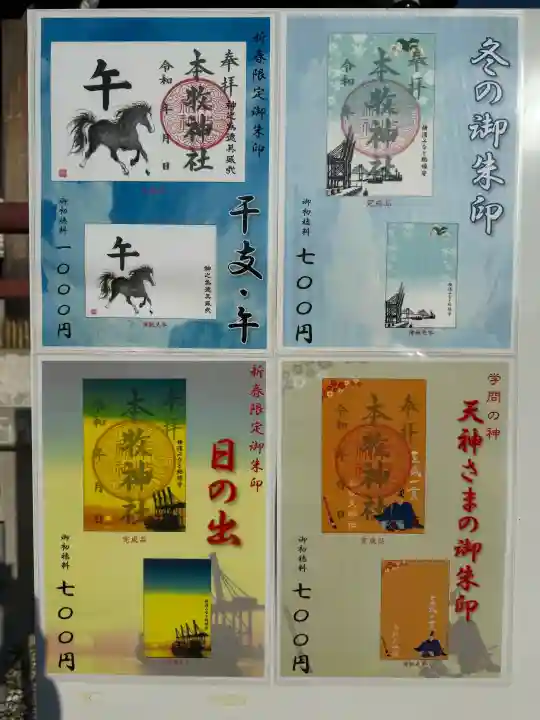 新春限定御朱印
奉拝
本牧神社
令和　年　月　日
午
完成品
干支・午
午
御初穂料　一〇〇〇円
冬の御朱印
奉拝
本牧神社
令和
完成品
御初穂料　七〇〇円
新春限定御朱印
日の出
奉拝
本牧神社
令和　年　月　日
完成品
御初穂料　七〇〇円
学問の神
天神さまの御朱印
奉拝
本牧神社
令和　年　月　日
完成品
御初穂料　七〇〇円